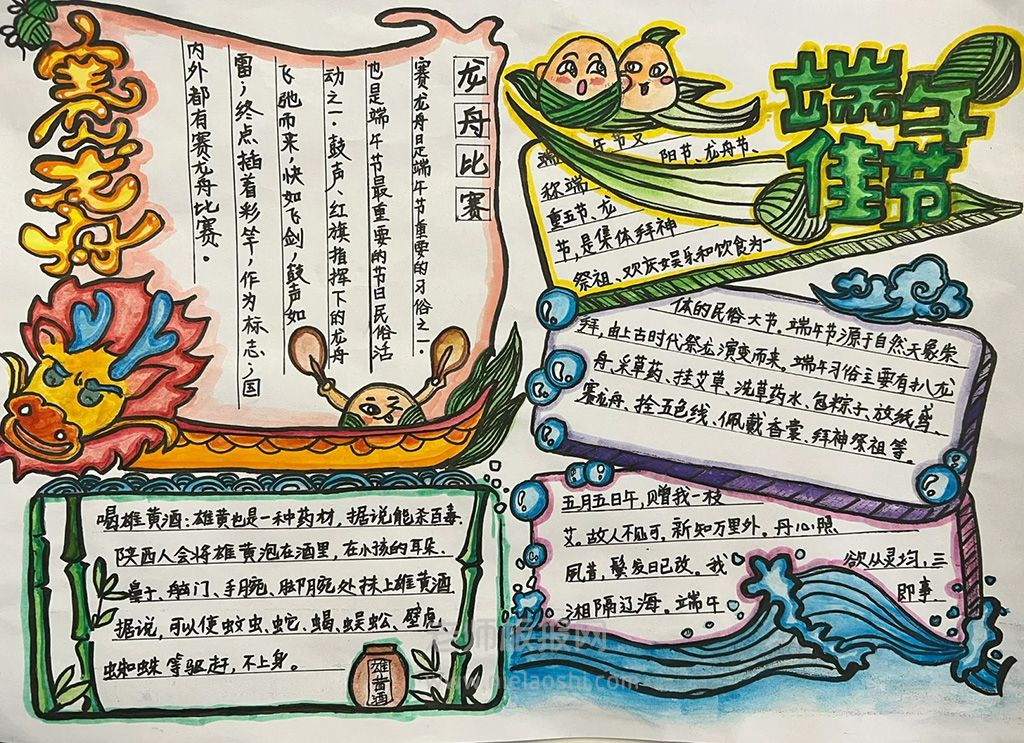 赛龙舟
龙舟比赛
赛龙舟是端午节重要的习俗之一.
也是端午节最重要的节日民俗活
动之一.鼓声、红旗指挥下的龙舟
飞驰而来,快如飞剑,鼓声如
雷;终点插着彩竿,作为标志;国
内外都有赛龙舟比赛.
端午佳节
端午节又
阳节、龙舟节、
称端
重五节、龙
节,是集体拜神
祭祖、欢庆娱乐和饮食为一
体的民俗大节。端午节源于自然天象崇
拜,由上古时代祭龙演变而来。端午习俗主要有扒龙
舟、采草药、挂艾草、洗草药水、包粽子、放纸鸢、
赛龙舟、拴五色线、佩戴香囊、拜神祭祖等。
喝雄黄酒:雄黄也是一种药材,据说能杀百毒.
陕西人会将雄黄泡在酒里,在小孩的耳朵.
鼻子、脑门、手腕、处抹上雄黄酒
据说,可以使蚊虫、蛇、蝎、蜈蚣、壁虎、
蜘蛛等驱赶,不上身。
雄黄酒
五月五日午,赠我一枝
艾.故人不见可,新知万里外.丹心照
夙昔,鬓发日已改.我
欲从灵均,三
湘隔辽海.端午
即事
老师板报网
www.melaoshi.com